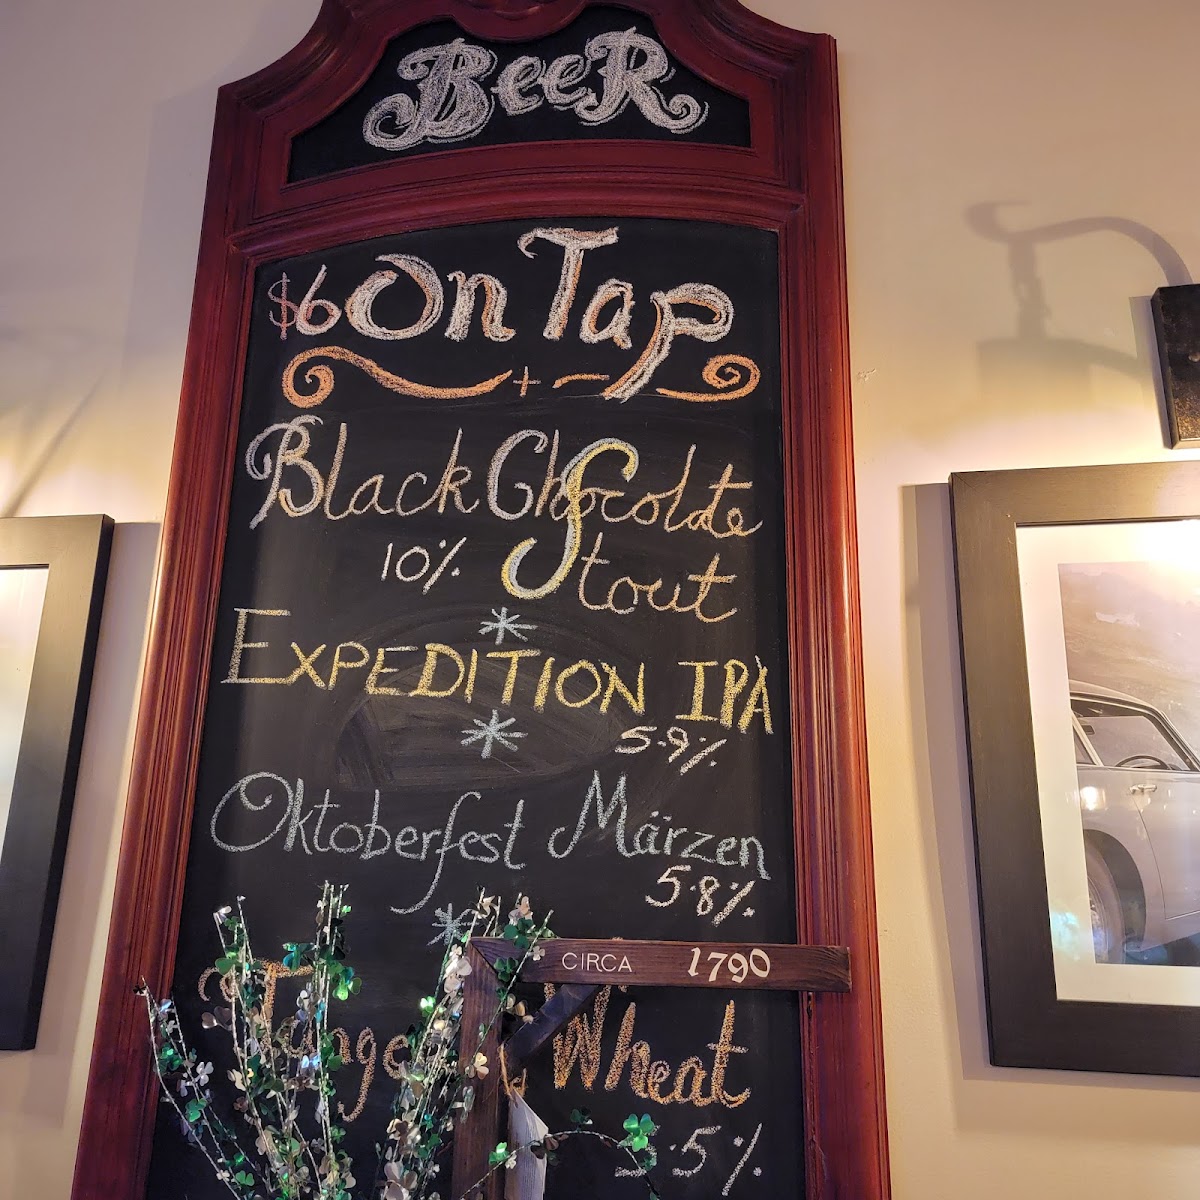 BeeR
$6 On Tap
Black Chocolate
10% Stout
EXPEDITION IPA
5.9%
Oktoberfest Märzen
5.8%
CIRCA 1790
Wheat
5.5%